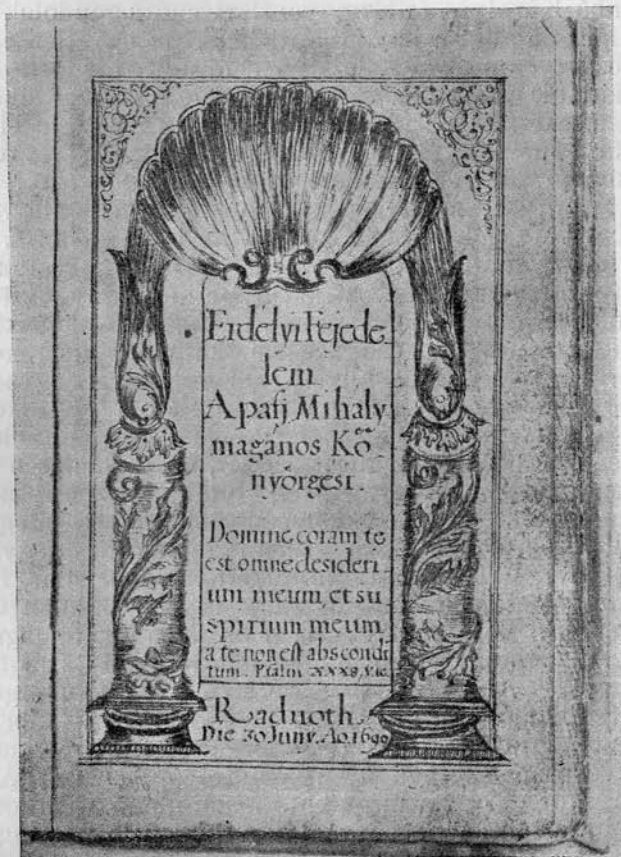 Erdelyi Fejede
lem
Apafi Mihaly
maganos Kö
nyörgesi.
Domine coram te
est omne desideri
um meum, et su
spirium meum
a te non est abscondi
tum. Psalm
Radnoth.
Die 30 Juny. Ao. 1690